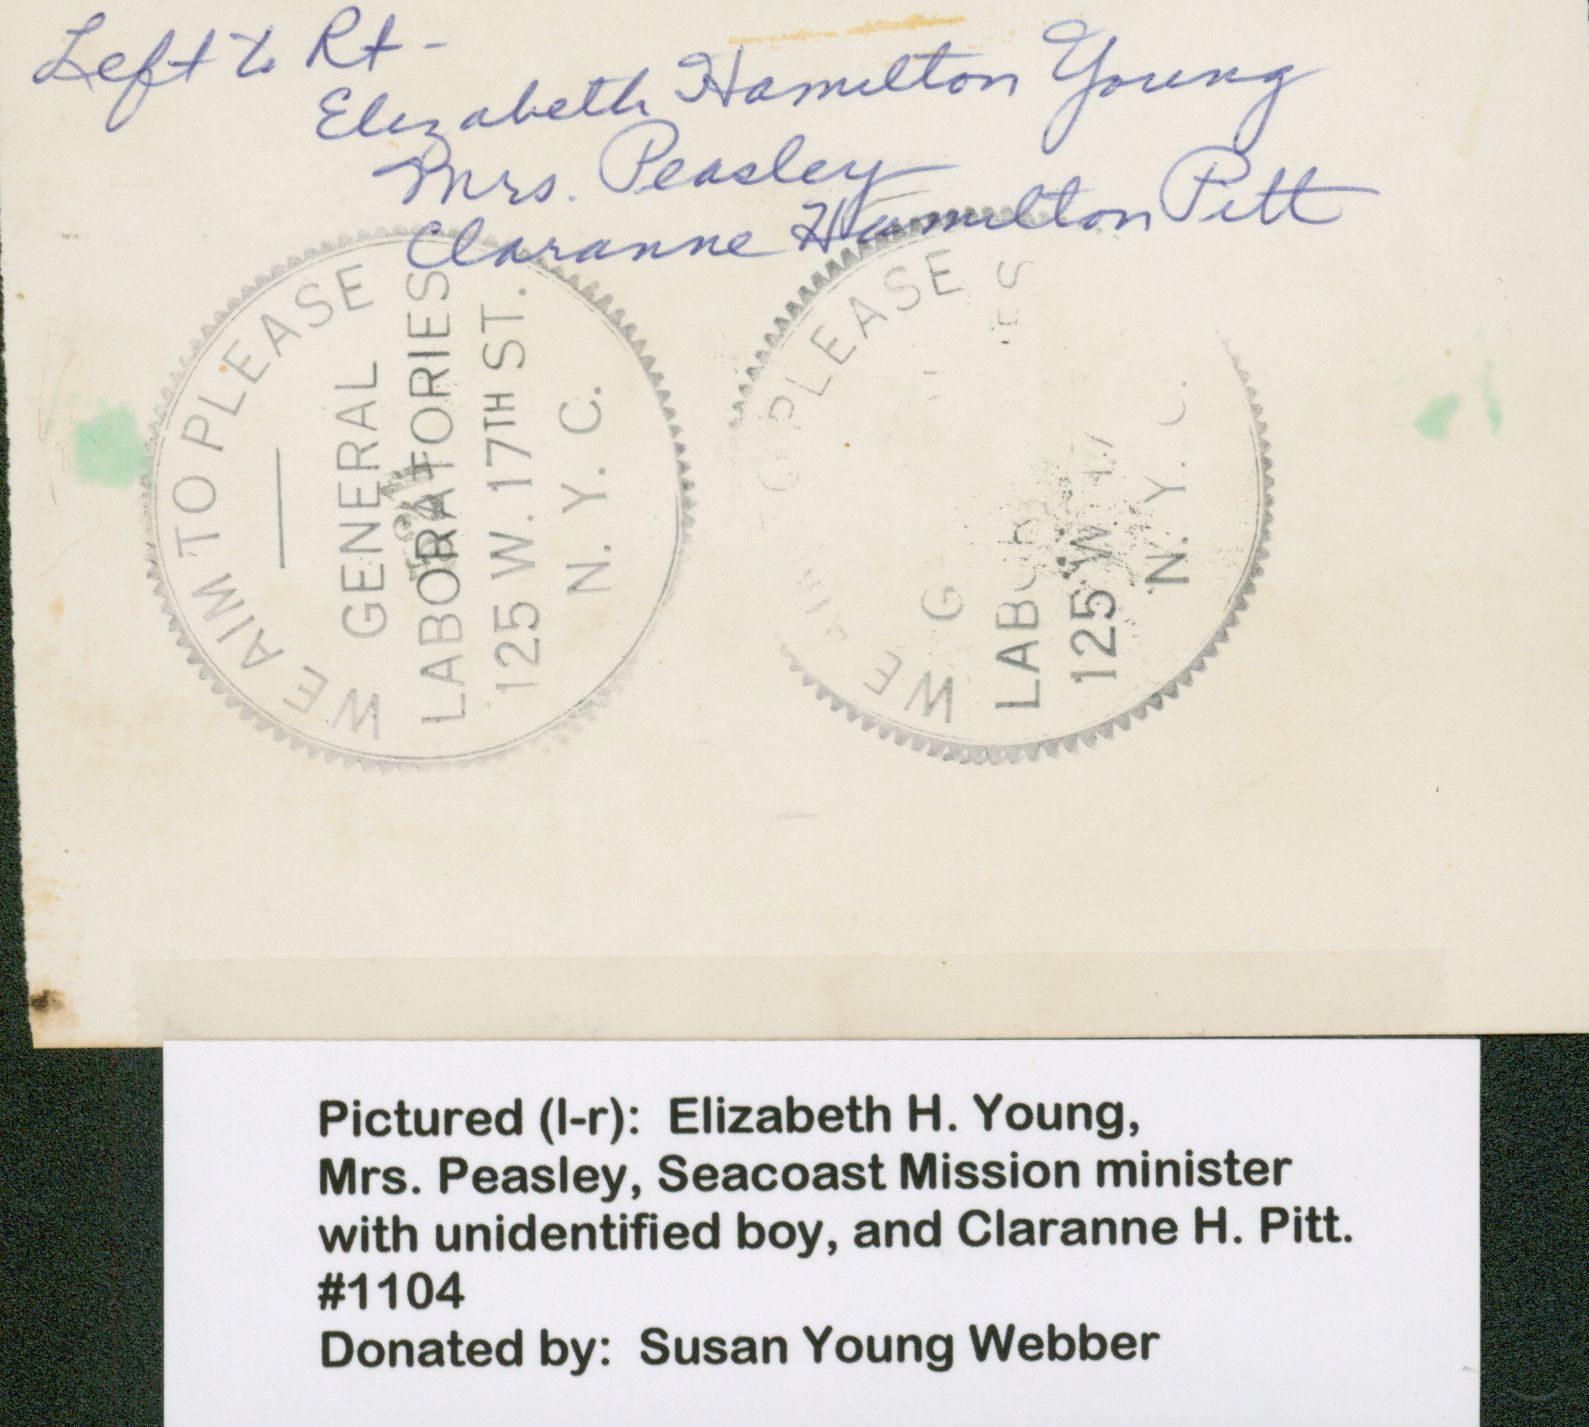 Left to Rt -
Elizabeth Hamilton Young
Mrs. Peasley
Claranne Hamilton Pitt
WE AIM TO PLEASE
GENERAL
LABORATORIES
125 W. 17TH ST.
N. Y. C.
WE AIM TO PLEASE
G
LABOR ES
125 W. 17
N. Y. C.
Pictured (l-r): Elizabeth H. Young,
Mrs. Peasley, Seacoast Mission minister
with unidentified boy, and Claranne H. Pitt.
#1104
Donated by: Susan Young Webber